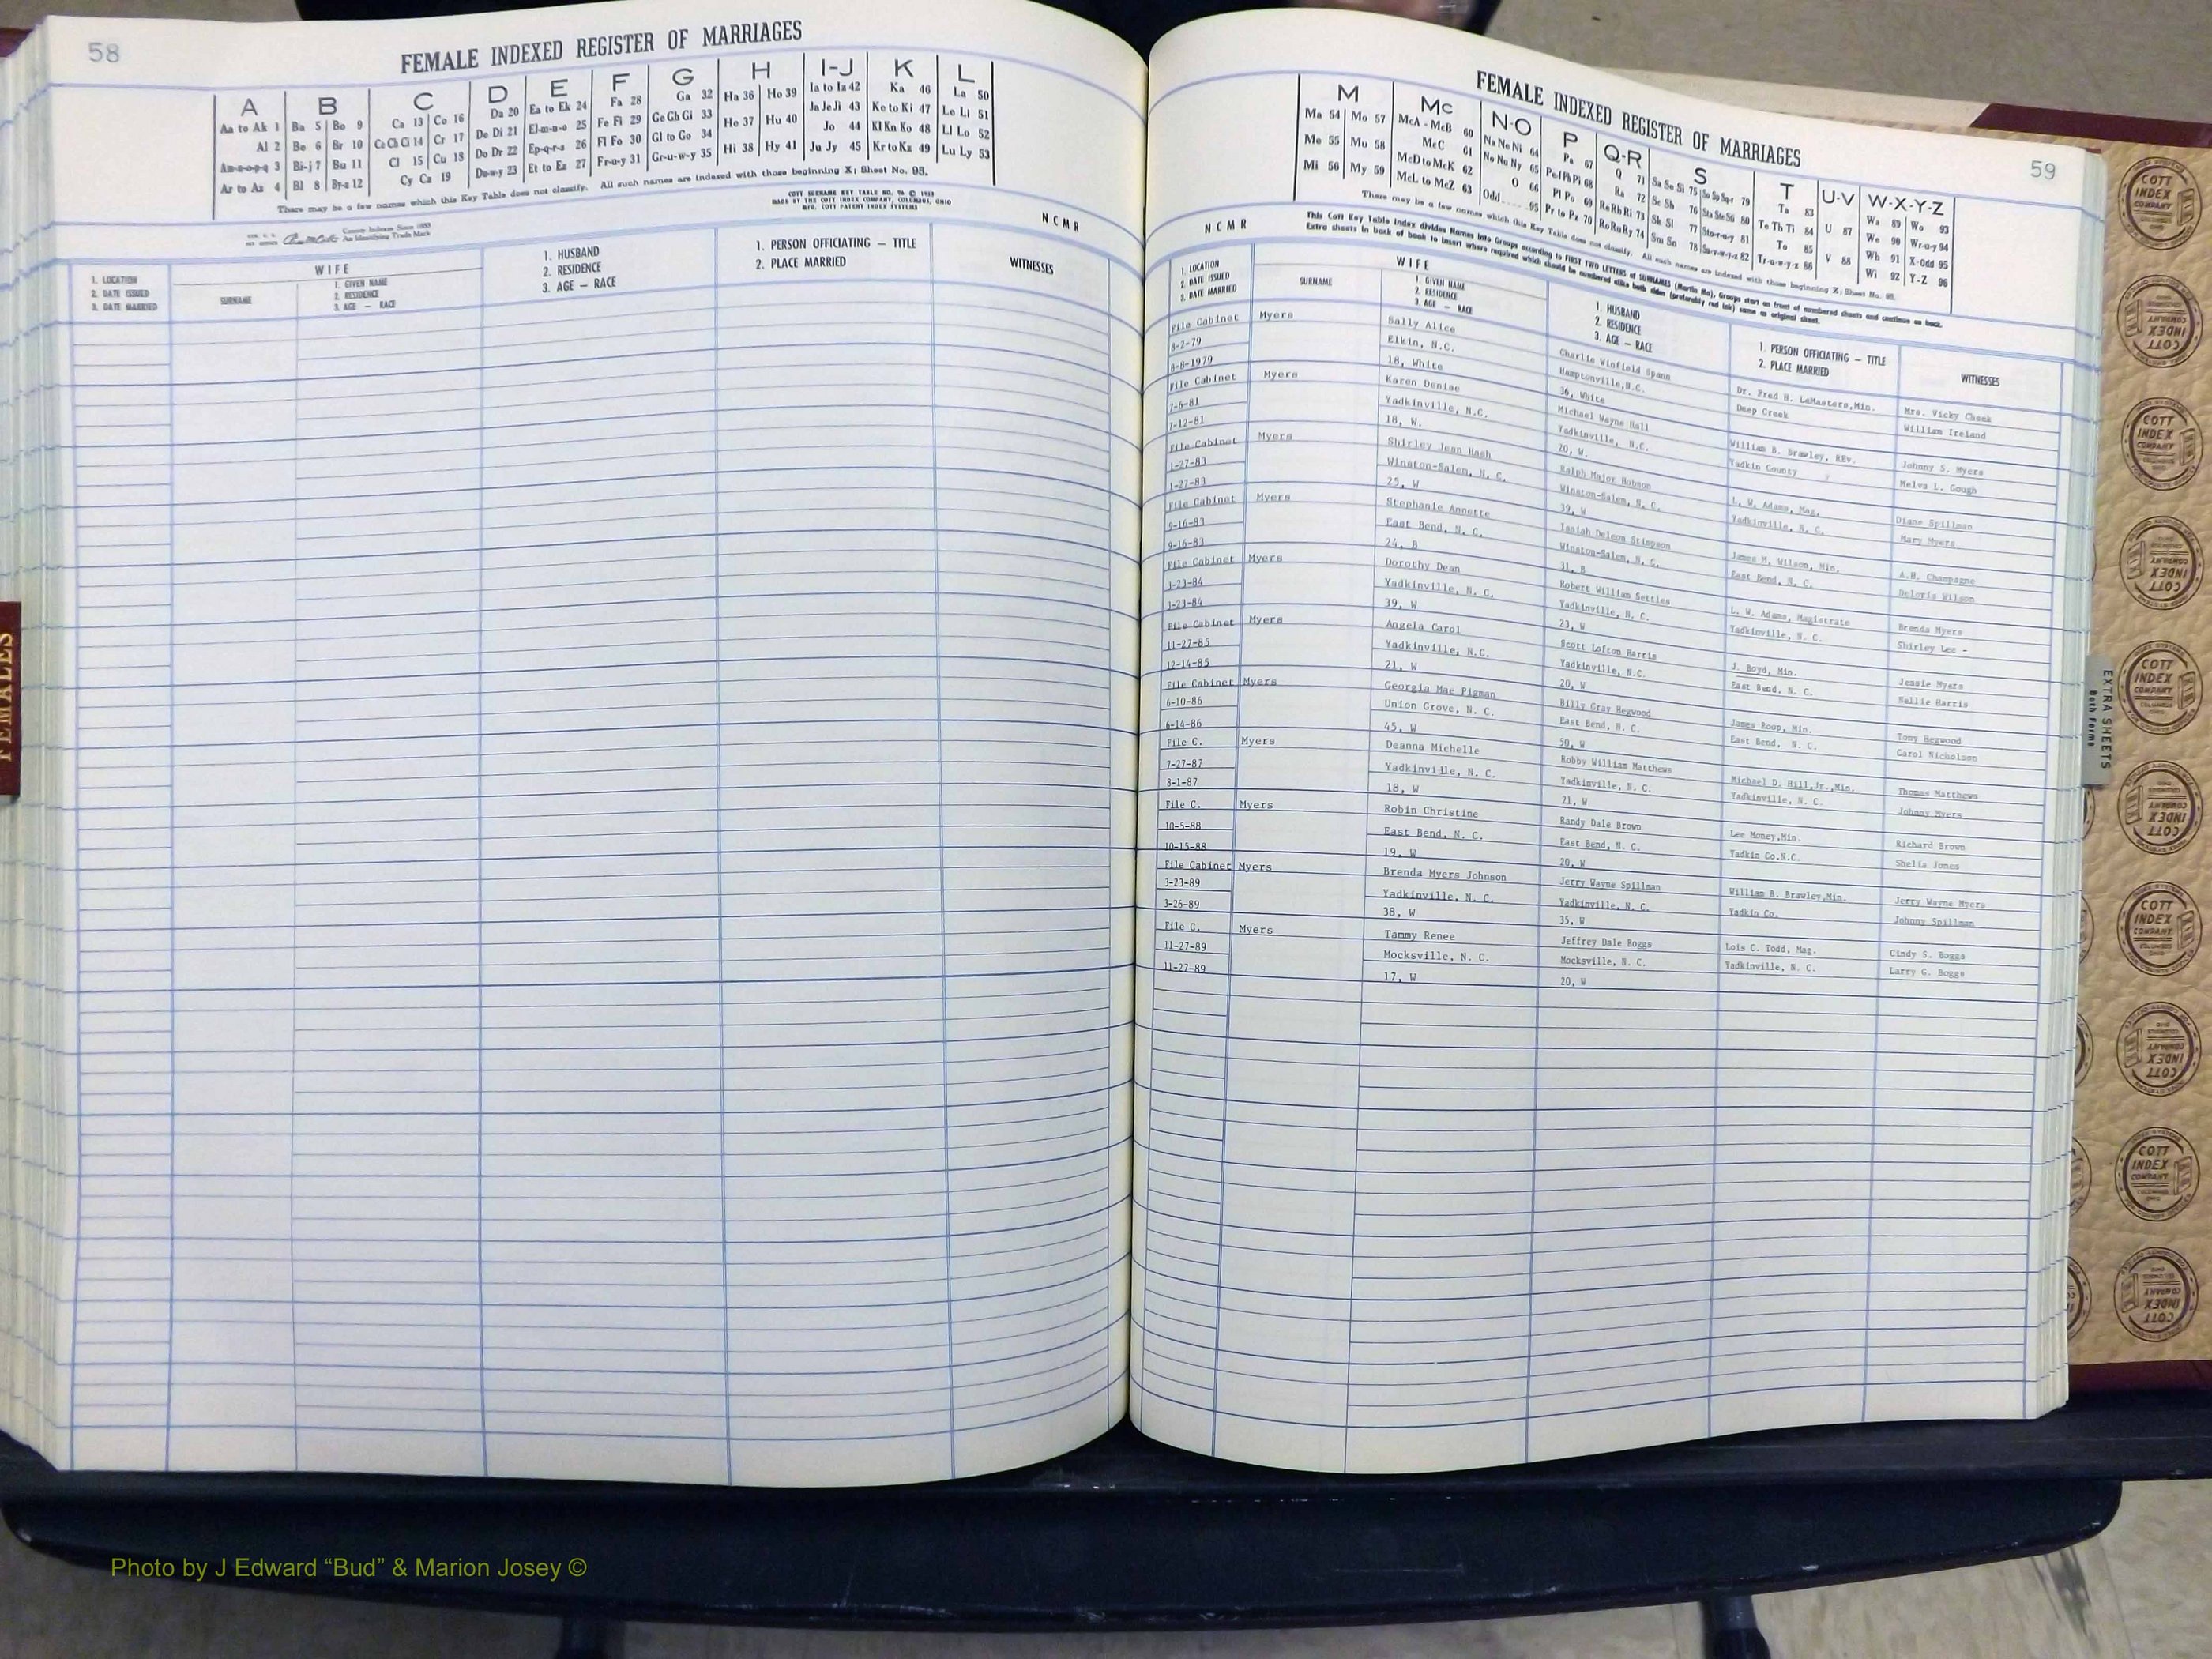 58
FEMALE INDEXED REGISTER OF MARRIAGES
A B C D E F G H I-J K L
Aa to Ak 1 Ba 5 Bo 9 Ca 13 Co 16 Da 20 Ea to Ek 24 Fa 28 Ga 32 Ha 36 Ho 39 Ia to Iz 42 Ka 46 La 50
Al 2 Be 6 Br 10 Ce Ch Ci 14 Cr 17 De Di 21 El-m-n-o 25 Fe Fi 29 Ge Gh Gi 33 He 37 Hu 40 Ja Je Ji 43 Ke to Ki 47 Le Li 51
Am-n-o-p-q 3 Bi-j 7 Bu 11 Cl 15 Cu 18 Do Dr 22 Ep-q-r-s 26 Fl Fo 30 Gl to Go 34 Hi 38 Hy 41 Jo 44 Kl Kn Ko 48 Ll Lo 52
Ar to Az 4 Bl 8 By-z 12 Cy Cz 19 Du-w-y 23 Et to Ez 27 Fr-u-y 31 Gr-u-w-y 35 Ju Jy 45 Kr to Kz 49 Lu Ly 53
There may be a few names which this Key Table does not classify. All such names are indexed with those beginning X; Sheet No. 98.
COTT SURNAME KEY TABLE NO.
MADE BY THE COTT INDEX COMPANY, COLUMBUS, OHIO
MFG. COTT PATENT INDEX SYSTEMS
An Identifying Trade Mark
NCMR
1. LOCATION
2. DATE ISSUED
3. DATE MARRIED
WIFE
SURNAME
1. GIVEN NAME
2. RESIDENCE
3. AGE — RACE
1. HUSBAND
2. RESIDENCE
3. AGE — RACE
1. PERSON OFFICIATING — TITLE
2. PLACE MARRIED
WITNESSES
59
FEMALE INDEXED REGISTER OF MARRIAGES
M Mc N-O P Q-R S T U-V W-X-Y-Z
Ma 54 Mo 57 McA - McB 60 Na Ne Ni 64 Pa 67 Q 71 Sa Se Si 75 79 Ta 83 U 87 Wa 89 Wo 93
Me 55 Mu 58 McC 61 No Nu Ny 65 Pe Pf Ph Pi 68 Ra 72 Sc Sh 76 Sta Ste Sti 80 Te Th Ti 84 V 88 We 90 Wr-u-y 94
Mi 56 My 59 McD to McK 62 O 66 Pl Po 69 Re Rh Ri 73 Sk Sl 77 Sto-r-u-y 81 To 85 Wh 91 X-Odd 95
McL to McZ 63 Odd 95 Pr to Pz 70 Ro Ru Ry 74 Sm Sn 78 Su-v-w-y-z 82 Tr-u-w-y-z 86 Wi 92 Y-Z 96
There may be a few names which this Key Table does not classify. All such names are indexed with those beginning X; Sheet No. 98.
This Cott Key Table Index divides Names into Groups according to FIRST TWO LETTERS of SURNAMES (Martin Ma), Groups start on front of numbered sheets and continue on back.
Extra sheets in back of book to insert where required which should be numbered alike both sides (preferably red ink) same as original sheet.
NCMR
1. LOCATION
2. DATE ISSUED
3. DATE MARRIED
WIFE
SURNAME
1. GIVEN NAME
2. RESIDENCE
3. AGE — RACE
1. HUSBAND
2. RESIDENCE
3. AGE — RACE
1. PERSON OFFICIATING — TITLE
2. PLACE MARRIED
WITNESSES
File Cabinet Myers Sally Alice Charlie Winfield Spann Dr. Fred H. LeMasters,Min. Mrs. Vicky Cheek
8-2-79 Elkin, N.C. Hamptonville,N.C. Deep Creek William Ireland
8-8-1979 18, White 36, White
File Cabinet Myers Karen Denise Michael Wayne Hall William B. Brawley, REv. Johnny S. Myers
7-6-81 Yadkinville, N.C. Yadkinville, N.C. Yadkin County Melva L. Gough
7-12-81 18, W. 20, W.
File Cabinet Myers Shirley Jean Hash Ralph Major Hobson L. W. Adams, Mag. Diane Spillman
1-27-83 Winston-Salem, N. C. Winston-Salem, N. C. Yadkinville, N. C. Mary Myers
1-27-83 25, W 39, W
File Cabinet Myers Stephanie Annette Isaiah Deleon Stimpson James M. Wilson, Min. A.H. Champagne
9-16-83 East Bend, N. C. Winston-Salem, N. C. East Bend, N. C. Deloris Wilson
9-16-83 24, B 31, B
File Cabinet Myers Dorothy Dean Robert William Settles L. W. Adams, Magistrate Brenda Myers
1-23-84 Yadkinville, N. C. Yadkinville, N. C. Yadkinville, N. C. Shirley Lee -
1-23-84 39, W 23, W
File Cabinet Myers Angela Carol Scott Lofton Harris J. Boyd, Min. Jessie Myers
11-27-85 Yadkinville, N.C. Yadkinville, N.C. East Bend, N. C. Nellie Harris
12-14-85 21, W 20, W
File Cabinet Myers Georgia Mae Pigman Billy Gray Hegwood James Roop, Min. Tony Hegwood
6-10-86 Union Grove, N. C. East Bend, N. C. East Bend, N. C. Carol Nicholson
6-14-86 45, W 50, W
File C. Myers Deanna Michelle Robby William Matthews Michael D. Hill,Jr.,Min. Thomas Matthews
7-27-87 Yadkinville, N. C. Yadkinville, N. C. Yadkinville, N. C. Johnny Myers
8-1-87 18, W 21, W
File C. Myers Robin Christine Randy Dale Brown Lee Money,Min. Richard Brown
10-5-88 East Bend, N. C. East Bend, N. C. Yadkin Co.N.C. Shelia Jones
10-15-88 19, W 20, W
File Cabinet Myers Brenda Myers Johnson Jerry Wayne Spillman William B. Brawley,Min. Jerry Wayne Myers
3-23-89 Yadkinville, N. C. Yadkinville, N. C. Yadkin Co. Johnny Spillman
3-26-89 38, W 35, W
File C. Myers Tammy Renee Jeffrey Dale Boggs Lois C. Todd, Mag. Cindy S. Boggs
11-27-89 Mocksville, N. C. Mocksville, N. C. Yadkinville, N. C. Larry G. Boggs
11-27-89 17, W 20, W
FEMALES
EXTRA SHEETS
Both Forms
COTT INDEX COMPANY
Photo by J Edward “Bud” & Marion Josey ©